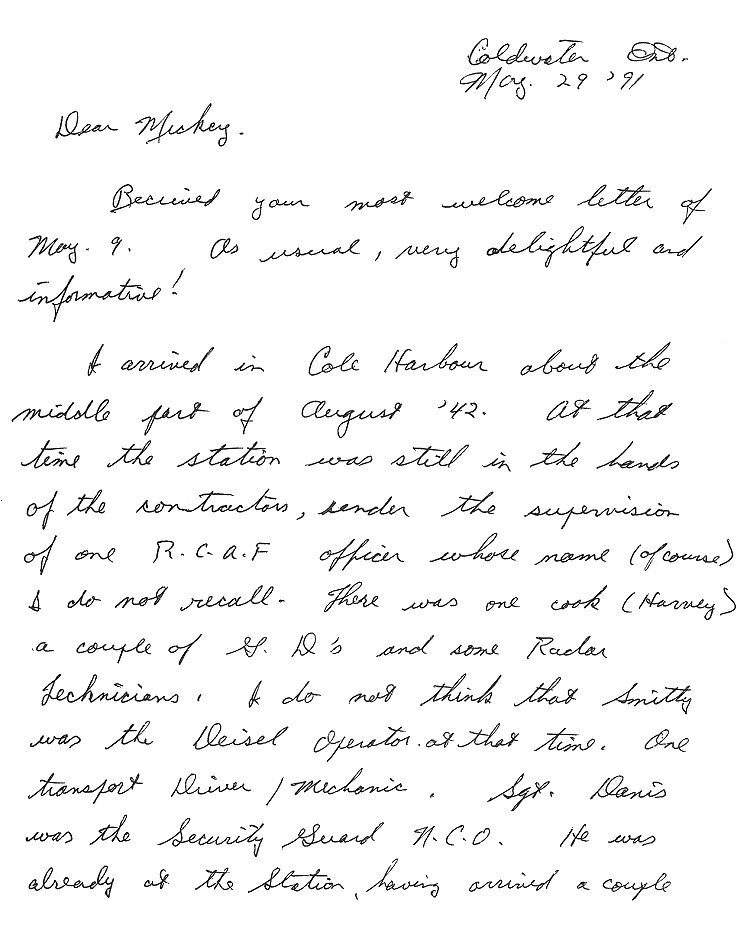 Coldwater Ont.
May. 29 '91
Dear Mickey.
Received your most welcome letter of
May. 9. As usual, very delightful and
informative!
I arrived in Cole Harbour about the
middle part of August '42. At that
time the station was still in the hands
of the contractors, under the supervision
of one R.C.A.F officer whose name (of course)
I do not recall. There was one cook (Harvey)
a couple of G. D's and some Radar
Technicians. I do not think that Smitty
was the Deisel Operator at that time. One
transport Driver / Mechanic. Sgt. Danis
was the Security Guard N.C.O. He was
already at the Station, having arrived a couple